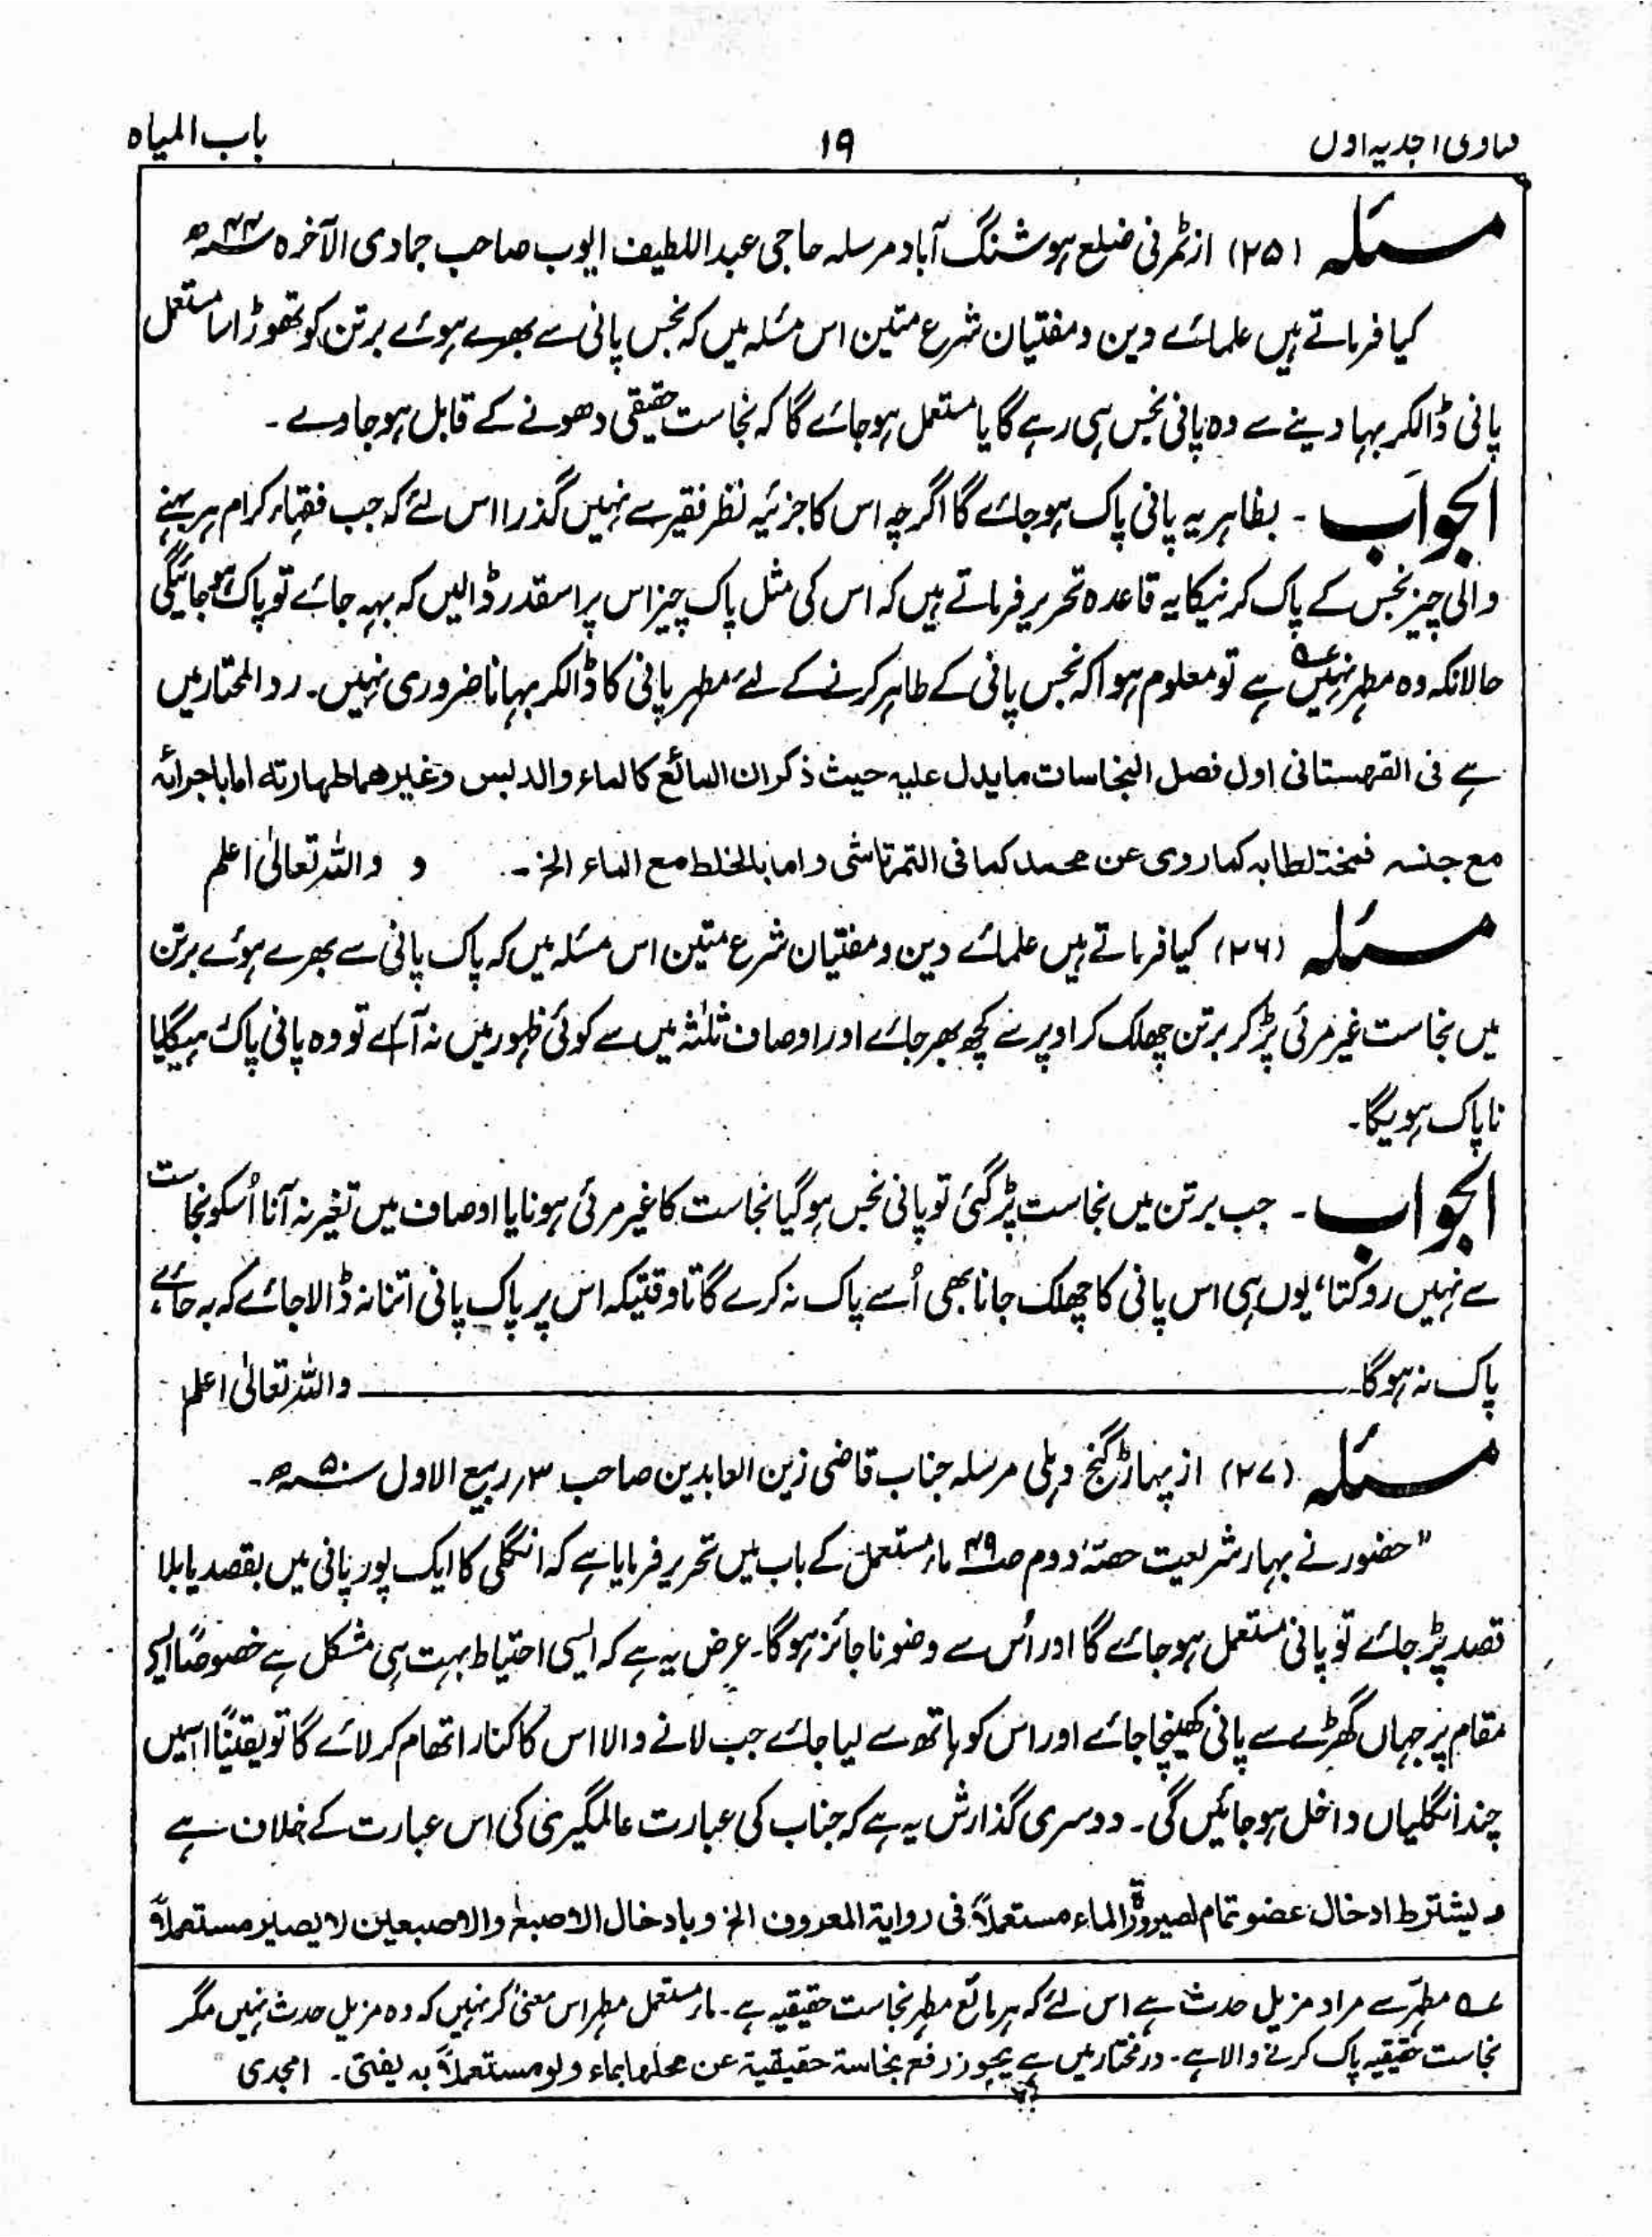 فتاوی امجدیہ اول
۱۹
باب المیاہ
مسئلہ (۲۵) از ٹمرنی ضلع ہوشنگ آباد مرسلہ حاجی عبداللطیف ایوب صاحب جمادی الآخرہ ۴۴ھ
کیا فرماتے ہیں علمائے دین و مفتیان شرع متین اس مسئلہ میں کہ نجس پانی سے بھرے ہوئے برتن کو تھوڑا سا مستعمل
پانی ڈالکر بہا دینے سے وہ پانی نجس ہی رہے گا یا مستعمل ہو جائے گا کہ نجاست حقیقی دھونے کے قابل ہو جاوے ۔
الجواب ۔ بظاہر یہ پانی پاک ہو جائے گا اگرچہ اس کا جزئیہ نظر فقیر سے نہیں گذرا اس لئے کہ جب فقہاء کرام ہر بہنے
والی چیز نجس کے پاک کرنیکا یہ قاعدہ تحریر فرماتے ہیں کہ اس کی مثل پاک چیز اس پر اسقدر ڈالیں کہ بہہ جائے تو پاک ہو جائیگی
حالانکہ وہ مطہر نہیں عہ ہے تو معلوم ہوا کہ نجس پانی کے طاہر کرنے کے لئے مطہر پانی کا ڈالکر بہانا ضروری نہیں ۔ رد المحتار میں
ہے فی القهستانی اول فصل النجاسات ما یدل علیہ حیث ذکر ان المائع کالماء والدبس وغیرھما طهارته اما باجرائه
مع جنسه مختلطا به کما روی عن محمد کما فی التمرتاشی واما بالخلط مع الماء الخ ۔ و واللہ تعالیٰ اعلم
مسئلہ (۲۶) کیا فرماتے ہیں علمائے دین و مفتیان شرع متین اس مسئلہ میں کہ پاک پانی سے بھرے ہوئے برتن
میں نجاست غیر مرئی پڑ کر برتن چھلک کر اوپر سے کچھ بھر جائے اور اوصاف ثلٰثہ میں سے کوئی ظہور میں نہ آئے تو وہ پانی پاک ہیگا یا
ناپاک ہویگا ۔
الجواب ۔ جب برتن میں نجاست پڑ گئی تو پانی نجس ہو گیا نجاست کا غیر مرئی ہونا یا اوصاف میں تغیر نہ آنا اُسکو نجاست
سے نہیں روکتا، یوں ہی اس پانی کا چھلک جانا بھی اُسے پاک نہ کرے گا تاوقتیکہ اس پر پاک پانی اتنا نہ ڈالا جائے کہ بہ جائے
پاک نہ ہوگا ـــــــ واللہ تعالیٰ اعلم
مسئلہ (۲۷) از پہاڑ گنج دہلی مرسلہ جناب قاضی زین العابدین صاحب ۳؍ ربیع الاول ۵۰ھ ۔
"حضور نے بہار شریعت حصۂ دوم ص ۴۹ ماء مستعمل کے باب میں تحریر فرمایا ہے کہ انگلی کا ایک پور پانی میں بقصد یا بلا
قصد پڑ جائے تو پانی مستعمل ہو جائے گا اور اُس سے وضو ناجائز ہوگا ۔ عرض یہ ہے کہ ایسی احتیاط بہت ہی مشکل ہے خصوصاً ایسے
مقام پر جہاں گھڑے سے پانی کھینچا جائے اور اس کو ہاتھ سے لیا جائے جب لانے والا اس کا کنارا تھام کر لائے گا تو یقیناً اسمیں
چند انگلیاں داخل ہو جائیں گی ۔ دوسری گذارش یہ ہے کہ جناب کی عبارت عالمگیری کی اس عبارت کے خلاف ہے
ویشترط ادخال عضو تمام لصیرورۃ الماء مستعملاً فی روایۃ المعروف الخ وبادخال الاصبع والاصبعین لا یصیر مستعملاً
عہ مطہر سے مراد مزیل حدث ہے اس لئے کہ ہر مائع مطہر نجاست حقیقیہ ہے ۔ ماء مستعمل مطہر اس معنیٰ کر نہیں کہ وہ مزیل حدث نہیں مگر
نجاست حقیقیہ پاک کرنے والا ہے ۔ در مختار میں ہے یجوز رفع نجاسة حقیقیة عن محلها بماء ولو مستعملاً به یفتی ۔ امجدی